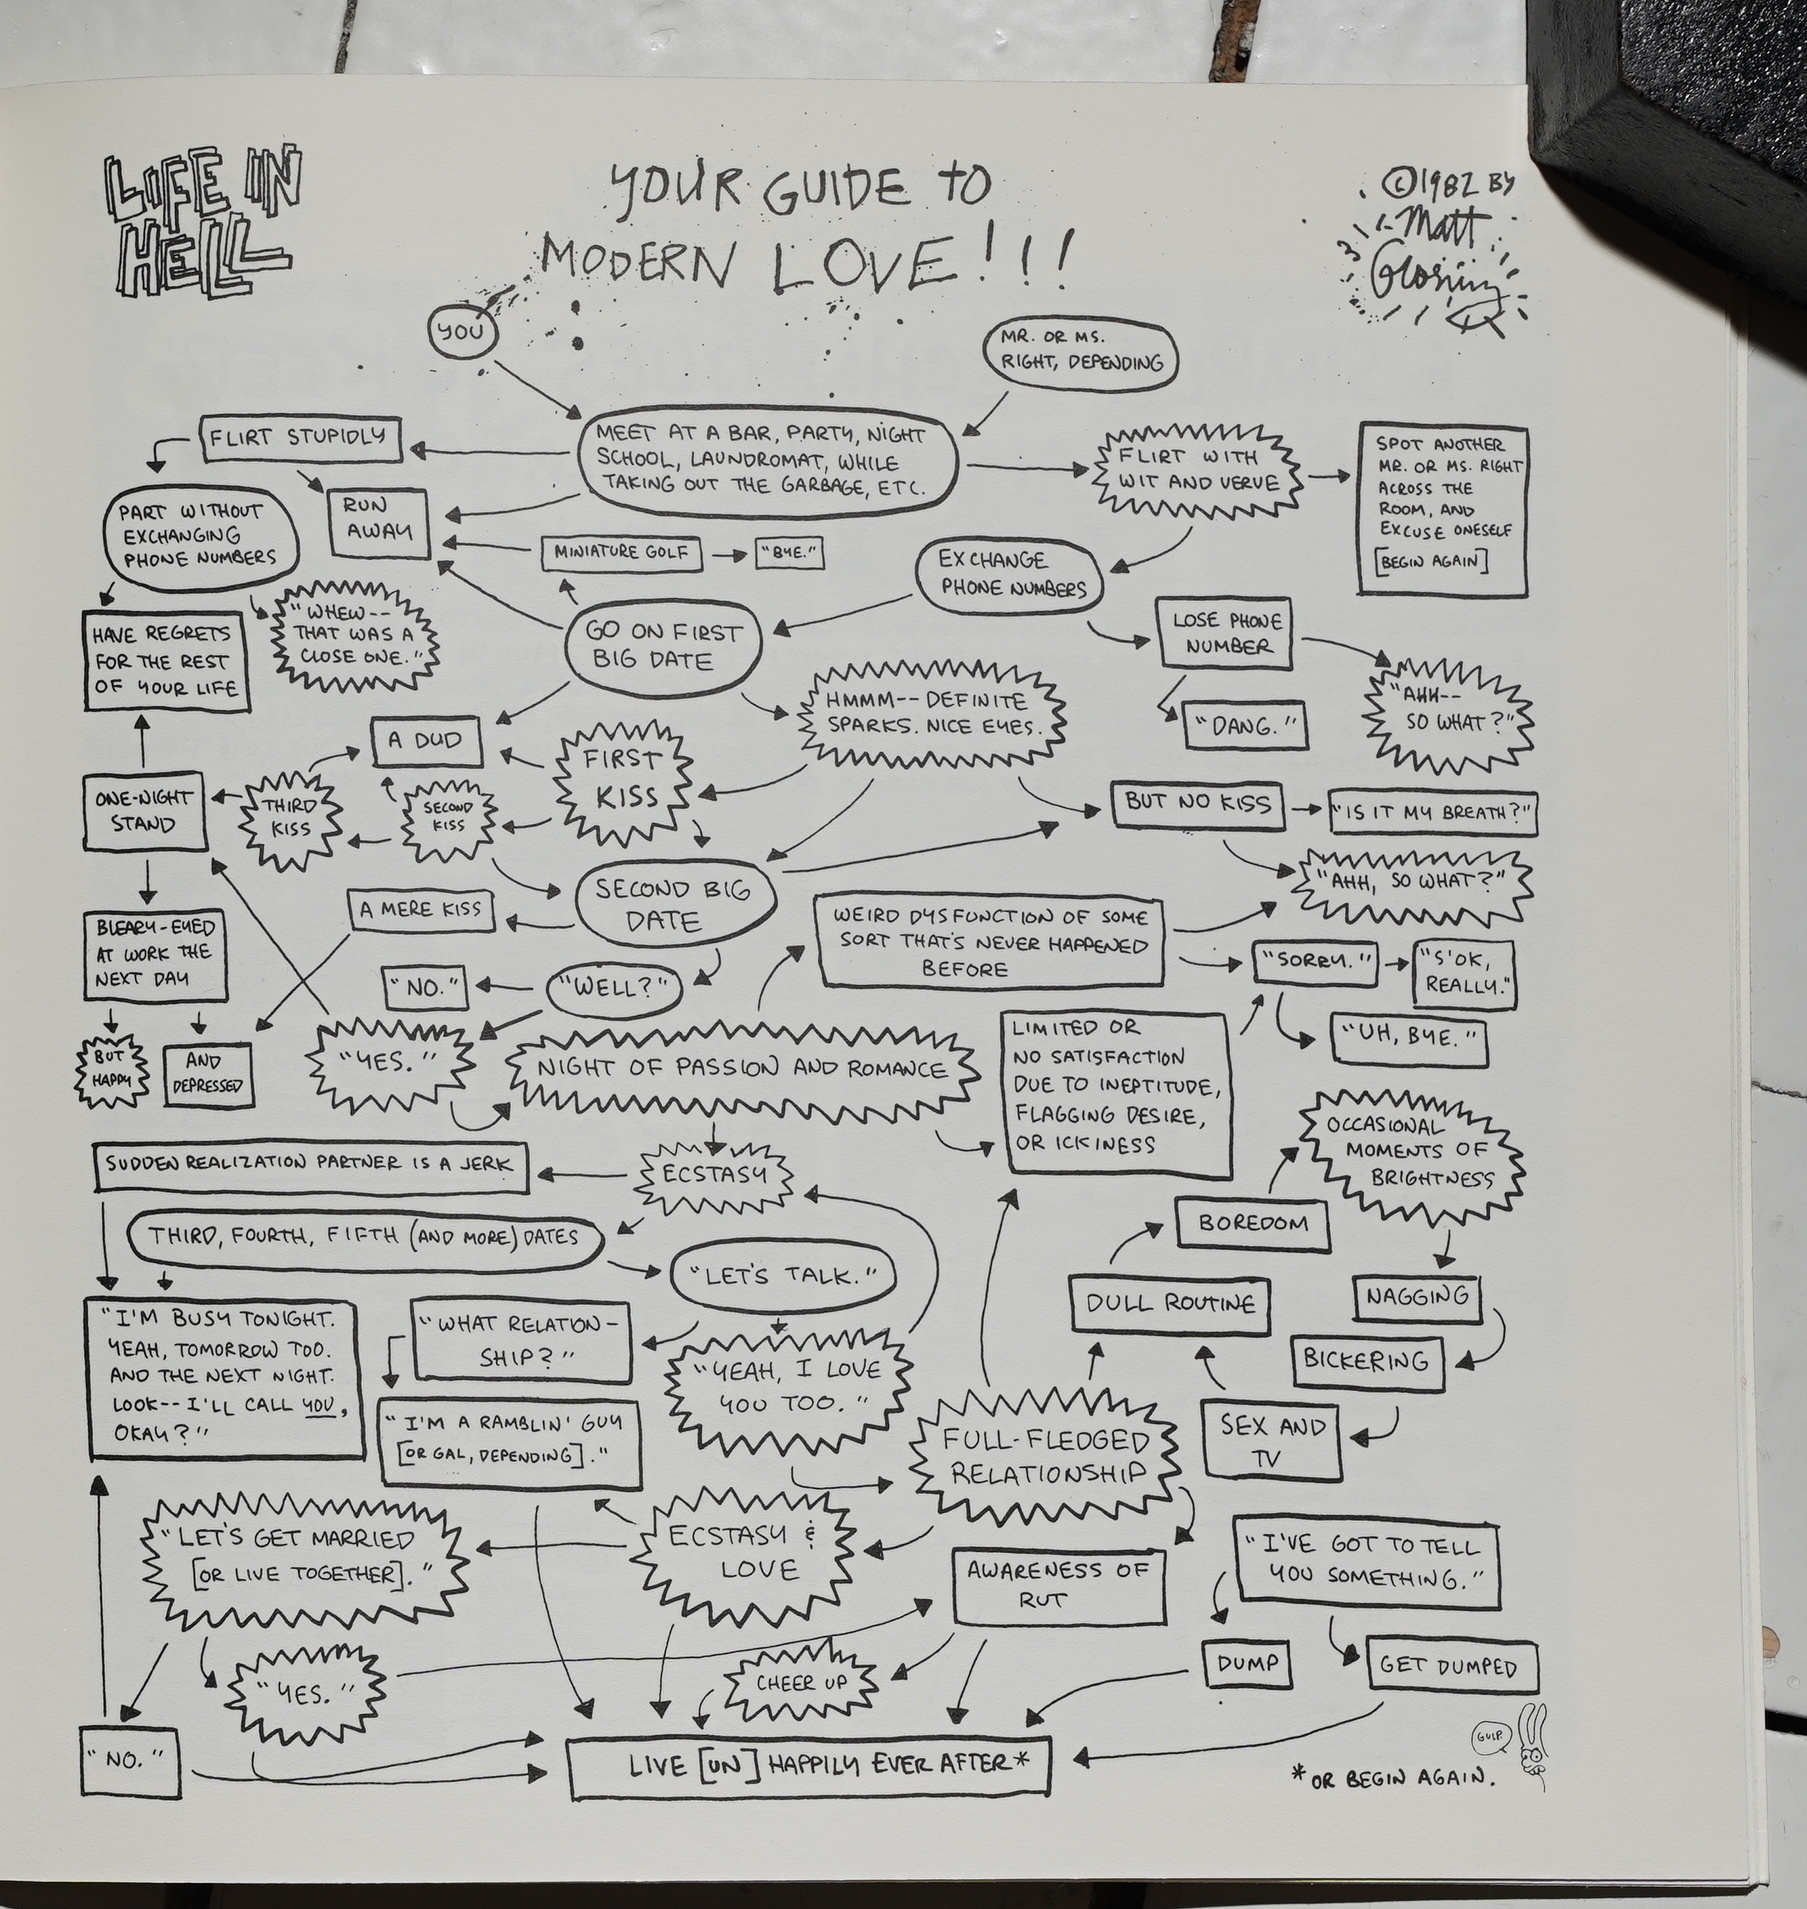 LIFE IN
HELL
YOUR GUIDE TO
MODERN LOVE!!!
©1982 BY
Matt
Groening
YOU
MR. OR MS.
RIGHT, DEPENDING
FLIRT STUPIDLY
MEET AT A BAR, PARTY, NIGHT
SCHOOL, LAUNDROMAT, WHILE
TAKING OUT THE GARBAGE, ETC.
FLIRT WITH
WIT AND VERVE
SPOT ANOTHER
MR. OR MS. RIGHT
ACROSS THE
ROOM, AND
EXCUSE ONESELF
[BEGIN AGAIN]
PART WITHOUT
EXCHANGING
PHONE NUMBERS
RUN
AWAY
MINIATURE GOLF
"BYE."
EXCHANGE
PHONE NUMBERS
HAVE REGRETS
FOR THE REST
OF YOUR LIFE
"WHEW--
THAT WAS A
CLOSE ONE."
GO ON FIRST
BIG DATE
LOSE PHONE
NUMBER
HMMM-- DEFINITE
SPARKS. NICE EYES.
"DANG."
"AHH--
SO WHAT?"
A DUD
FIRST
KISS
ONE-NIGHT
STAND
THIRD
KISS
SECOND
KISS
BUT NO KISS
"IS IT MY BREATH?"
SECOND BIG
DATE
"AHH, SO WHAT?"
A MERE KISS
WEIRD DYSFUNCTION OF SOME
SORT THAT'S NEVER HAPPENED
BEFORE
BLEARY-EYED
AT WORK THE
NEXT DAY
"NO."
"WELL?"
"SORRY."
"S'OK,
REALLY."
BUT
HAPPY
AND
DEPRESSED
"YES."
NIGHT OF PASSION AND ROMANCE
LIMITED OR
NO SATISFACTION
DUE TO INEPTITUDE,
FLAGGING DESIRE,
OR ICKINESS
"UH, BYE."
SUDDEN REALIZATION PARTNER IS A JERK
ECSTASY
OCCASIONAL
MOMENTS OF
BRIGHTNESS
THIRD, FOURTH, FIFTH (AND MORE) DATES
"LET'S TALK."
BOREDOM
DULL ROUTINE
NAGGING
"I'M BUSY TONIGHT.
YEAH, TOMORROW TOO.
AND THE NEXT NIGHT.
LOOK-- I'LL CALL YOU,
OKAY?"
"WHAT RELATION-
SHIP?"
"YEAH, I LOVE
YOU TOO."
BICKERING
"I'M A RAMBLIN' GUY
[OR GAL, DEPENDING]."
FULL-FLEDGED
RELATIONSHIP
SEX AND
TV
"LET'S GET MARRIED
[OR LIVE TOGETHER]."
ECSTASY &
LOVE
AWARENESS OF
RUT
"I'VE GOT TO TELL
YOU SOMETHING."
"YES."
CHEER UP
DUMP
GET DUMPED
"NO."
LIVE [UN] HAPPILY EVER AFTER*
GULP.
*OR BEGIN AGAIN.